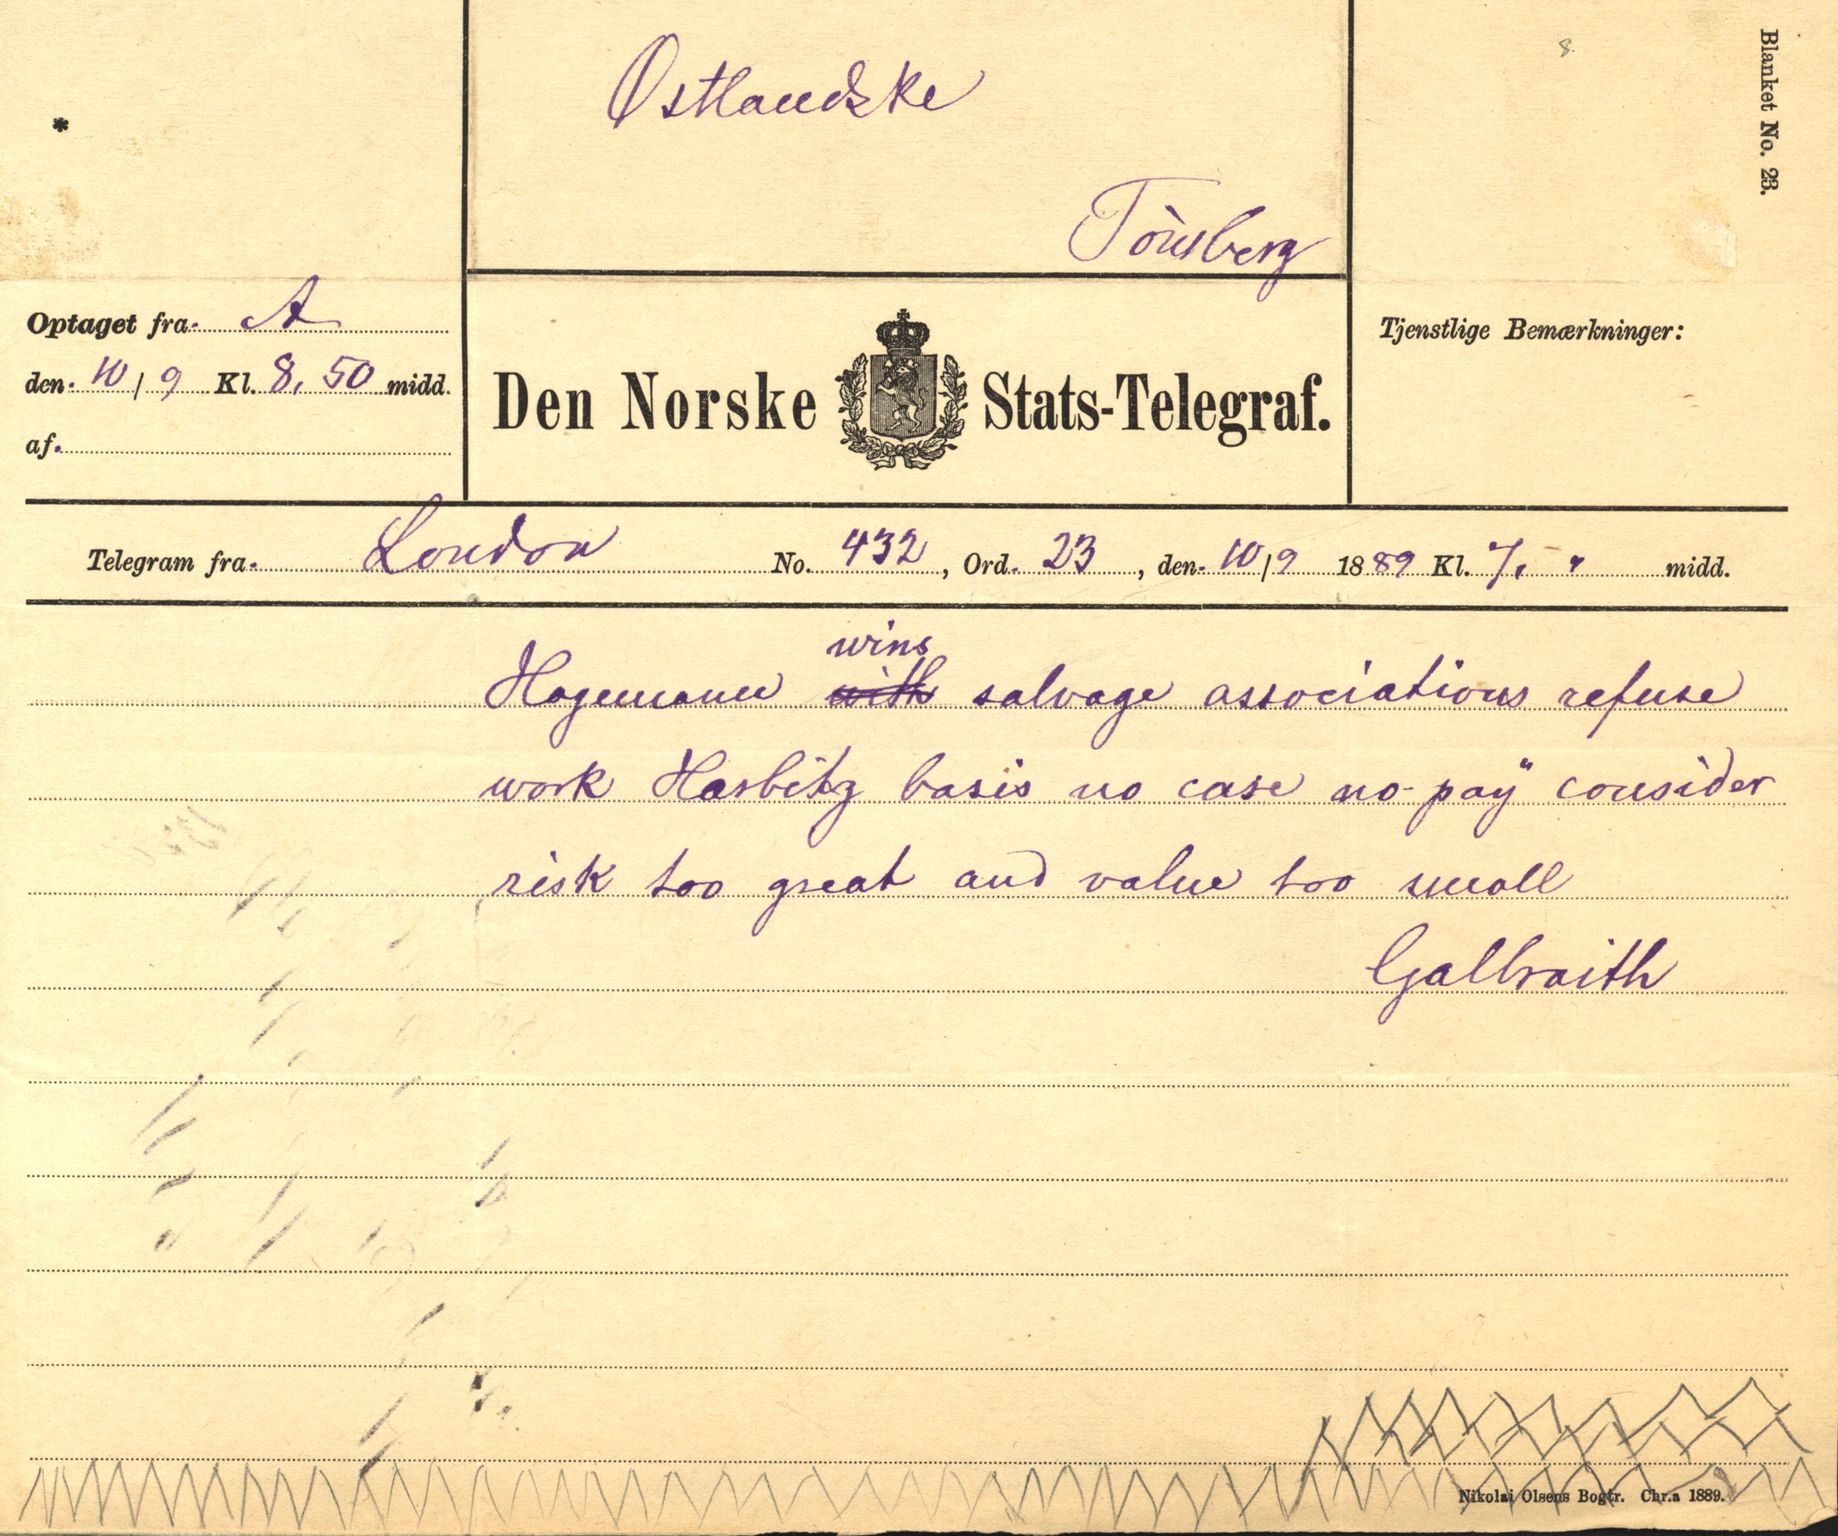 Østlandske
Tönsberg
8.
Blanket No. 23.
*
Optaget fra A
den 10/9 Kl. 8,50 midd.
af
Den Norske Stats-Telegraf.
Tjenstlige Bemærkninger:
Telegram fra London No. 432, Ord. 23, den 10/9 1889 Kl. 7, " midd.
wins
Hagemann with salvage associations refuse
work Hasbitz basis no case no pay" consider
risk too great and value too small
Galbraith
Nikolai Olsens Bogtr. Chr.a 1889.